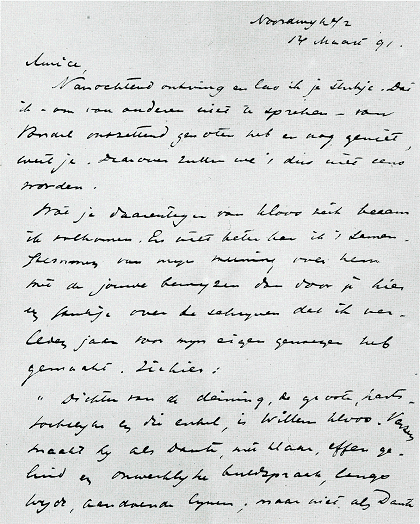 Noordwijk a/z
14 Maart 91.
Amice,
Vanochtend ontving en las ik je stukje. Dat
ik - om van anderen niet te spreken - van
ontzettend genoten heb en nog geniet,
weet je. Daarover zullen we 't dus niet eens
worden.
Wat je daarentegen van Kloos zegt beaam
ik volkomen. En niet beter kan ik 't samen-
van mijn meening over hem
met de jouwe bewijzen dan door je hier
een stukje over te schrijven dat ik ver-
leden jaar voor mijn eigen genoegen heb
gemaakt. Ziehier:
" Dichter van de deining, de groote, harts-
tochtelyke en die enkel, is Willem Kloos. Verzen
maakt hy als Dante, met klaar, effen ge-
luid en onwerklyke beeldspraak, langs
lynen; maar niet als Dante